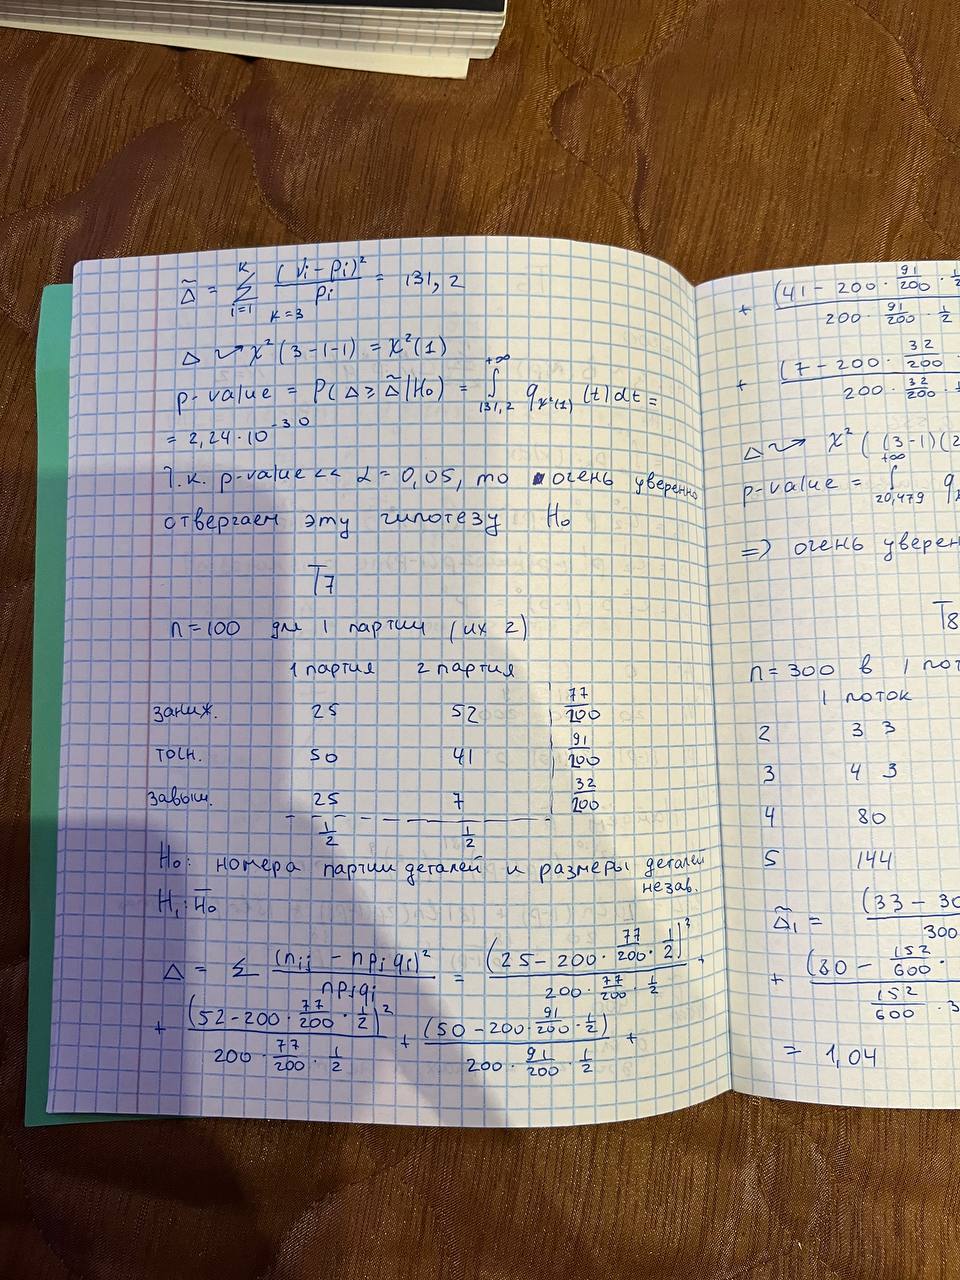 Δ̃ = Σ_{i=1}^{k} (νi − pi)² / pi = 131,2
k=3
Δ ⤳ χ²(3-1-1) = χ²(1)
p-value = P(Δ ≥ Δ̃ | H₀) = ∫_{131,2}^{+∞} q_{χ²(1)}(t)dt =
= 2,24·10⁻³⁰
Т.к. p-value << α = 0,05, то очень уверенно
отвергаем эту гипотезу H₀
T7
n=100 для 1 партии (их 2)
1 партия 2 партия
заниж. 25 52 77/200
точн. 50 41 91/200
завыш. 25 7 32/200
1/2 1/2
H₀: номера партии деталей и размеры деталей
незав.
H₁: H̄₀
Δ = Σ (nij − npjqi)² / npjqi = (25 − 200 · 77/200 · 1/2)² / 200 · 77/200 · 1/2 +
+ (52 − 200 · 77/200 · 1/2)² / 200 · 77/200 · 1/2 + (50 − 200 · 91/200 · 1/2) / 200 · 91/200 · 1/2 +
+ (41 − 200 · 91/200 · 1/2 / 200 · 91/200 · 1/2
+ (7 − 200 · 32/200 / 200 · 32/200 ·
Δ ⤳ χ²((3-1)(2
p-value = ∫_{20,479}^{+∞} q
=> очень уверен
T8
n=300 в 1 пот
1 поток
2 33
3 43
4 80
5 144
Δ̃₁ = (33 − 30 / 300
+ (80 − 152/600 · / 152/600 · 3
= 1,04